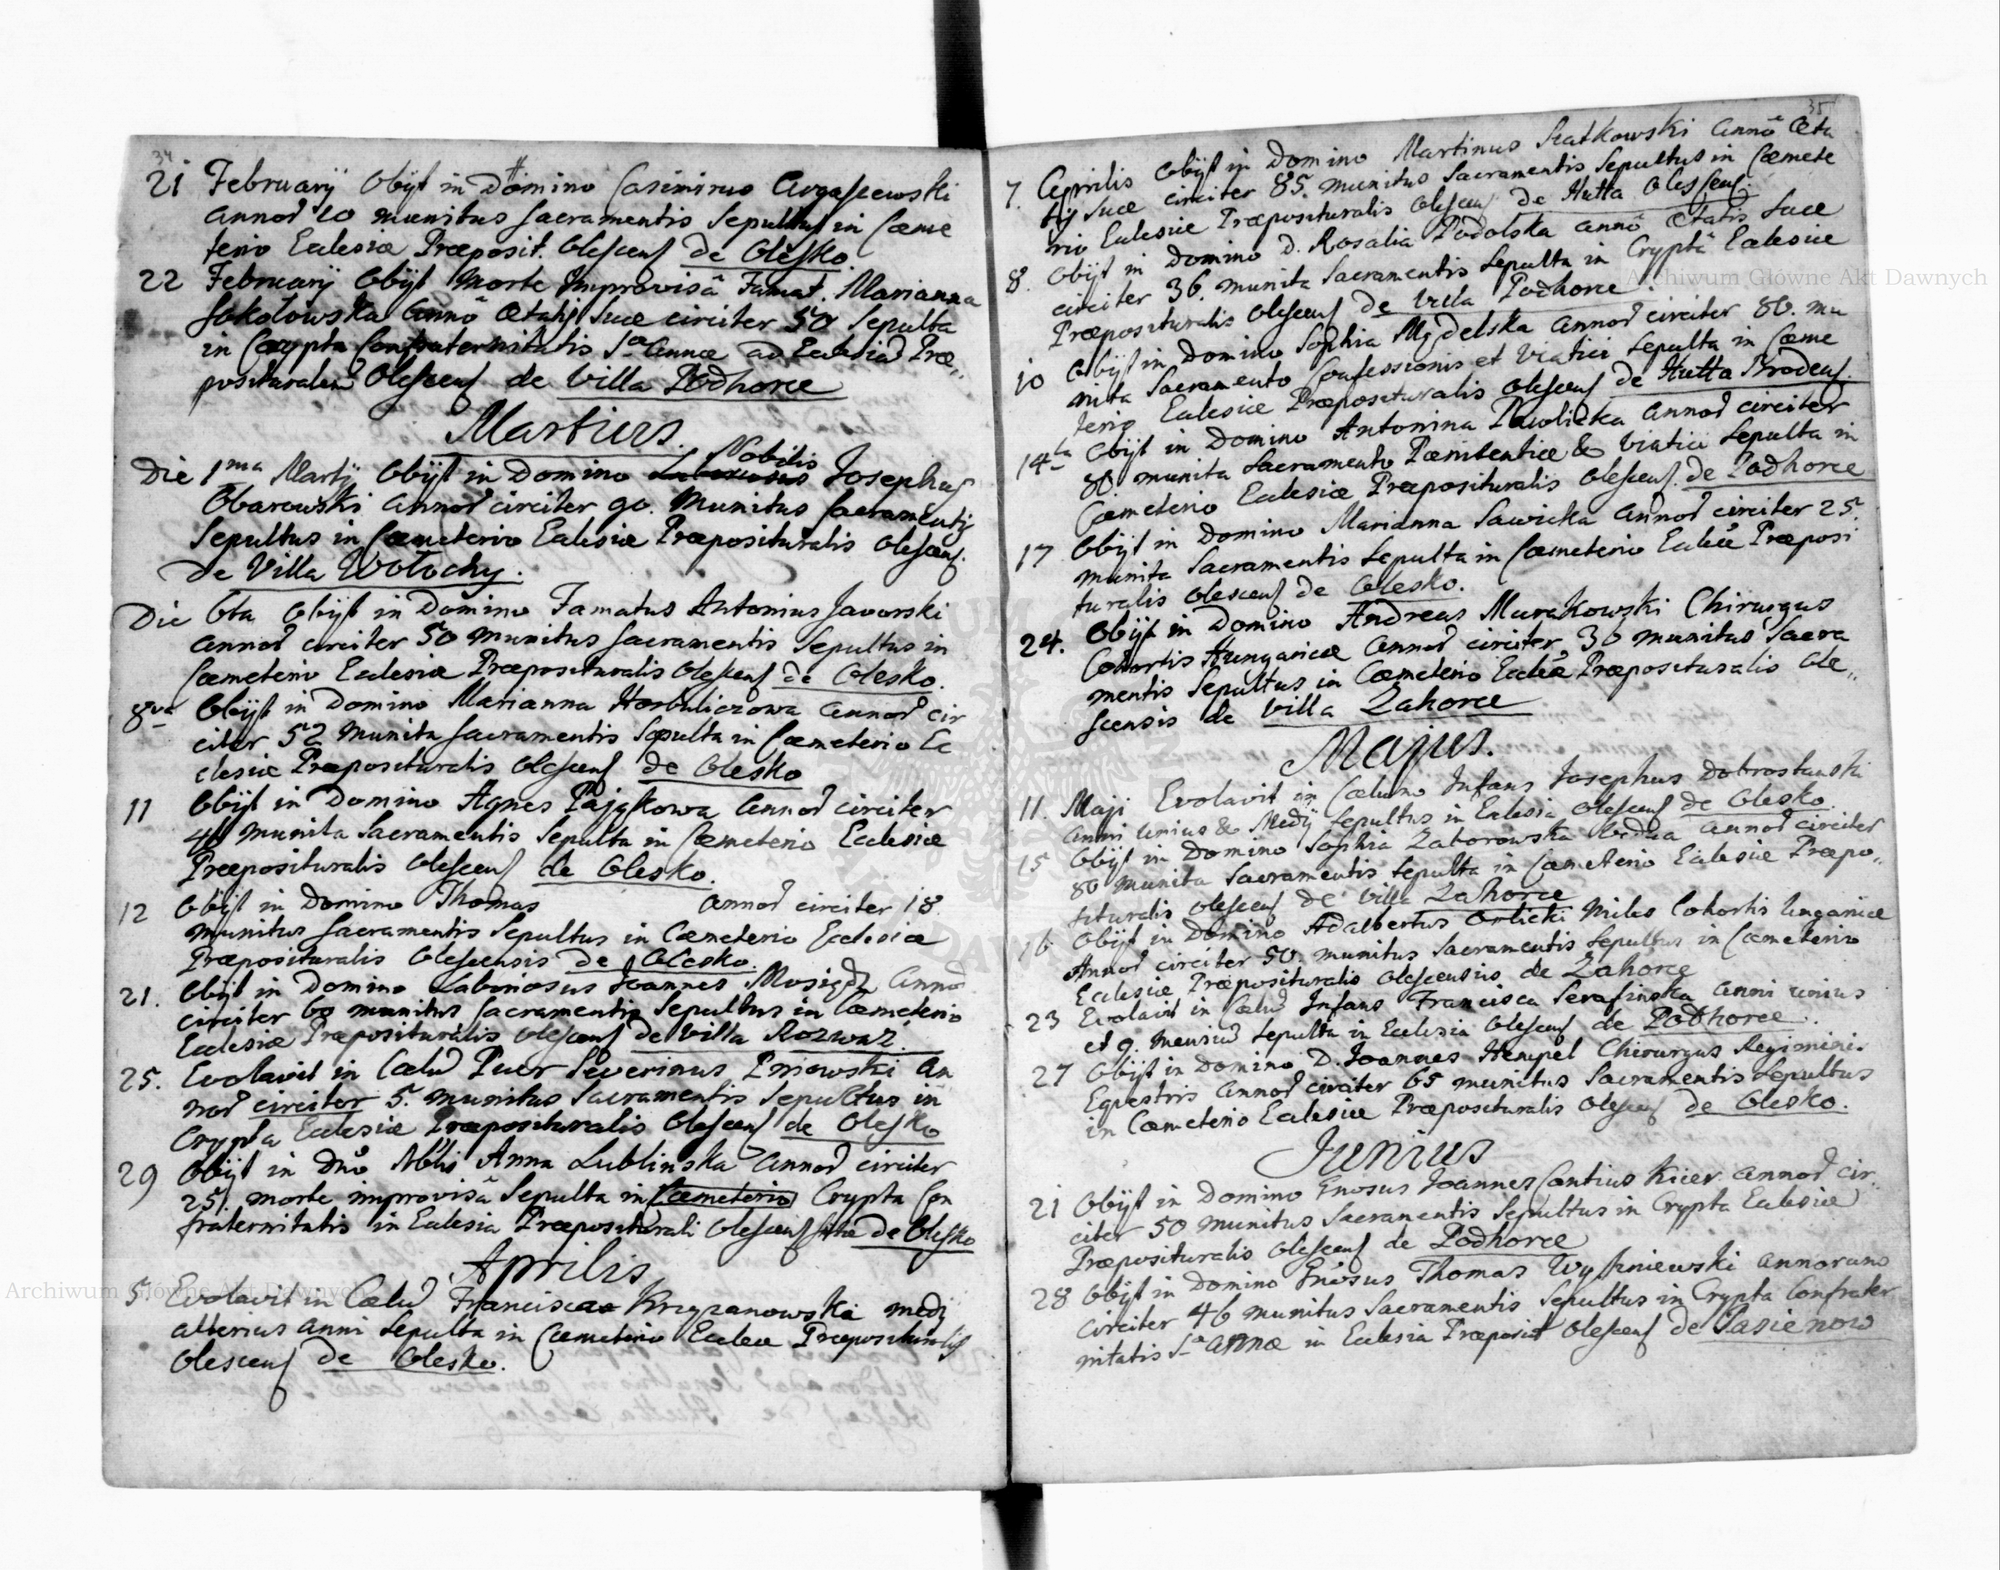 34
21 Februarij Obijt in Domino Casimirus
Annor 20 munitus Sacramentis Sepultus in Cæme
terio Eclesiæ Præposit. Olescens de Olesko.
22 Februarij Obijt Morte Improvisâ Famat. Marianna
Sokołowska Annô Ætatis Suæ circiter 50 Sepulta
in Crypta Confraternitatis Sæ Annæ ad Eclesiã Præ„
posituralem Olescens de Villa Podhorce
Martius.
Die 1ma Martij Obijt in Domino Laboriosus Nobilis Josephus
Obarowski Annor circiter 90. Munitus Sacramentis
Sepultus in Cæmeterio Eclesiæ Præposituralis Olescens.
de Villa Wołochy.
Die 6ta Obijt in Domino Famatus Antonius Javorski
Annor circiter 50 Munitus Sacramentis Sepultus in
Cæmeterio Eclesiæ Præposituralis Olescens de Olesko.
8va Obijt in Domino Marianna Horbuliczowa Annor cir
citer 52 Munita Sacramentis Sepulta in Cæmeterio Ec
clesiæ Præposituralis Olescens de Olesko
11 Obijt in Domino Agnes Pająkowa Annor circiter
46 Munita Sacramentis Sepulta in Cæmeterio Ecclesiæ
Præposituralis Olescens de Olesko.
12 Obijt in Domino Thomas Annor circiter 18.
munitus Sacramentis Sepultus in Cæmeterio Ecclesiæ
Præposituralis Olescensis de Olesko.
21. Obijt in Domino Laboriosus Joannes Annor
circiter 60 munitus Sacramentis Sepultus in Cæmeterio
Eclesiæ Præposituralis Olescens de Villa Rozwaz.
25. Evolavit in Cælũ Puer Severinus Pniowski An
nor circiter 5. munitus Sacramentis Sepultus in
Crypta Eclesiæ Præposituralis Olescens de Olesko
29 Obijt in Dnõ Nblis Anna Lublinska Annor circiter
25. morte improvisâ Sepulta in Cæmeterio Crypta Con
fraternitatis in Eclesia Præpositurali Olescens de Olesko
Aprilis
5. Evolavit in Cælũ Francisca Krzyzanowska medij
alterius anni Sepulta in Cæmeterio Eccleæ Præposituralis
Olescens de Olesko.
35
7. Aprilis Obijt in Domino Martinus Annô Æta
tis Suæ circiter 85. munitus Sacramentis Sepultus in Cæmete
rio Eclesiæ Præposituralis Olescens de Hutta Olescens.
8. Obijt in Domino D. Rosalia Podolska annô Ætatis Suæ
circiter 36. munita Sacramentis Sepulta in Cryptâ Eclesiæ
Præposituralis Olescens de Villa Podhorce.
10 Obijt in Domino Sophia Annor circiter 80. mu
nita Sacramento Confessionis et Viatici Sepulta in Cæme
terio Eclesiæ Præposituralis Olescens de Hutta Brodens.
14ta Obijt in Domino Antonina Pawlicka Annor circiter
80 munita Sacramento Pænitentiæ & Viatici Sepulta in
Cæmeterio Eclesiæ Præposituralis Olescens. de Podhorce
17 Obijt in Domino Marianna Sawicka Annor circiter 25.
munita Sacramentis Sepulta in Cæmeterio Eccleæ Præposi
turalis Olescens de Olesko.
24. Obijt in Domino Andreas Murakowski Chirurgus
Cohortis Hungaricæ Annor circiter 30 munitus Sacra
mentis Sepultus in Cæmeterio Eccleæ Præposituralis Ole„
scensis de Villa Zahorce
Majus.
11. Maji Evolavit in Cælum Infans Josephus Dobrostanski
Anni unius & Medij Sepultus in Eclesia Olescens de Olesko.
15 Obijt in Domino Sophia Zaborowska Vidua Annor circiter
80 munita Sacramentis Sepulta in Cæmeterio Eclesiæ Præpo„
situralis Olescens de Villa Zahorce
16 Obijt in Domino Adalbertus Orlicki Miles Cohortis Ungaricæ
Annor circiter 50. munitus Sacramentis Sepultus in Cæmeterio
Eclesiæ Præposituralis Olescensis de Zahorce
23 Evolavit in Cælũ Infans Francisca Serafinska anni unius
et 9. mensiũ Sepulta in Eclesia Olescens de Podhorce.
27 Obijt in Domino D. Joannes Hempel Chirurgus Regiminis
Eqvestris Annor circiter 65 munitus Sacramentis Sepultus
in Cæmeterio Eclesiæ Præposituralis Olescens de Olesko.
Junius
21 Obijt in Domino Gnosus Joannes Cantius Kicer Annor cir„
citer 50 munitus Sacramentis Sepultus in Crypta Eclesiæ
Præposituralis Olescens de Podhorce
28 Obijt in Domino Gnosus Thomas Wyszniewski Annorum
circiter 46 munitus Sacramentis Sepultus in Crypta Confrater
nitatis Sæ Annæ in Eclesia Præposit Olescens de Sasienow
Archiwum Główne Akt Dawnych
Archiwum Główne Akt Dawnych